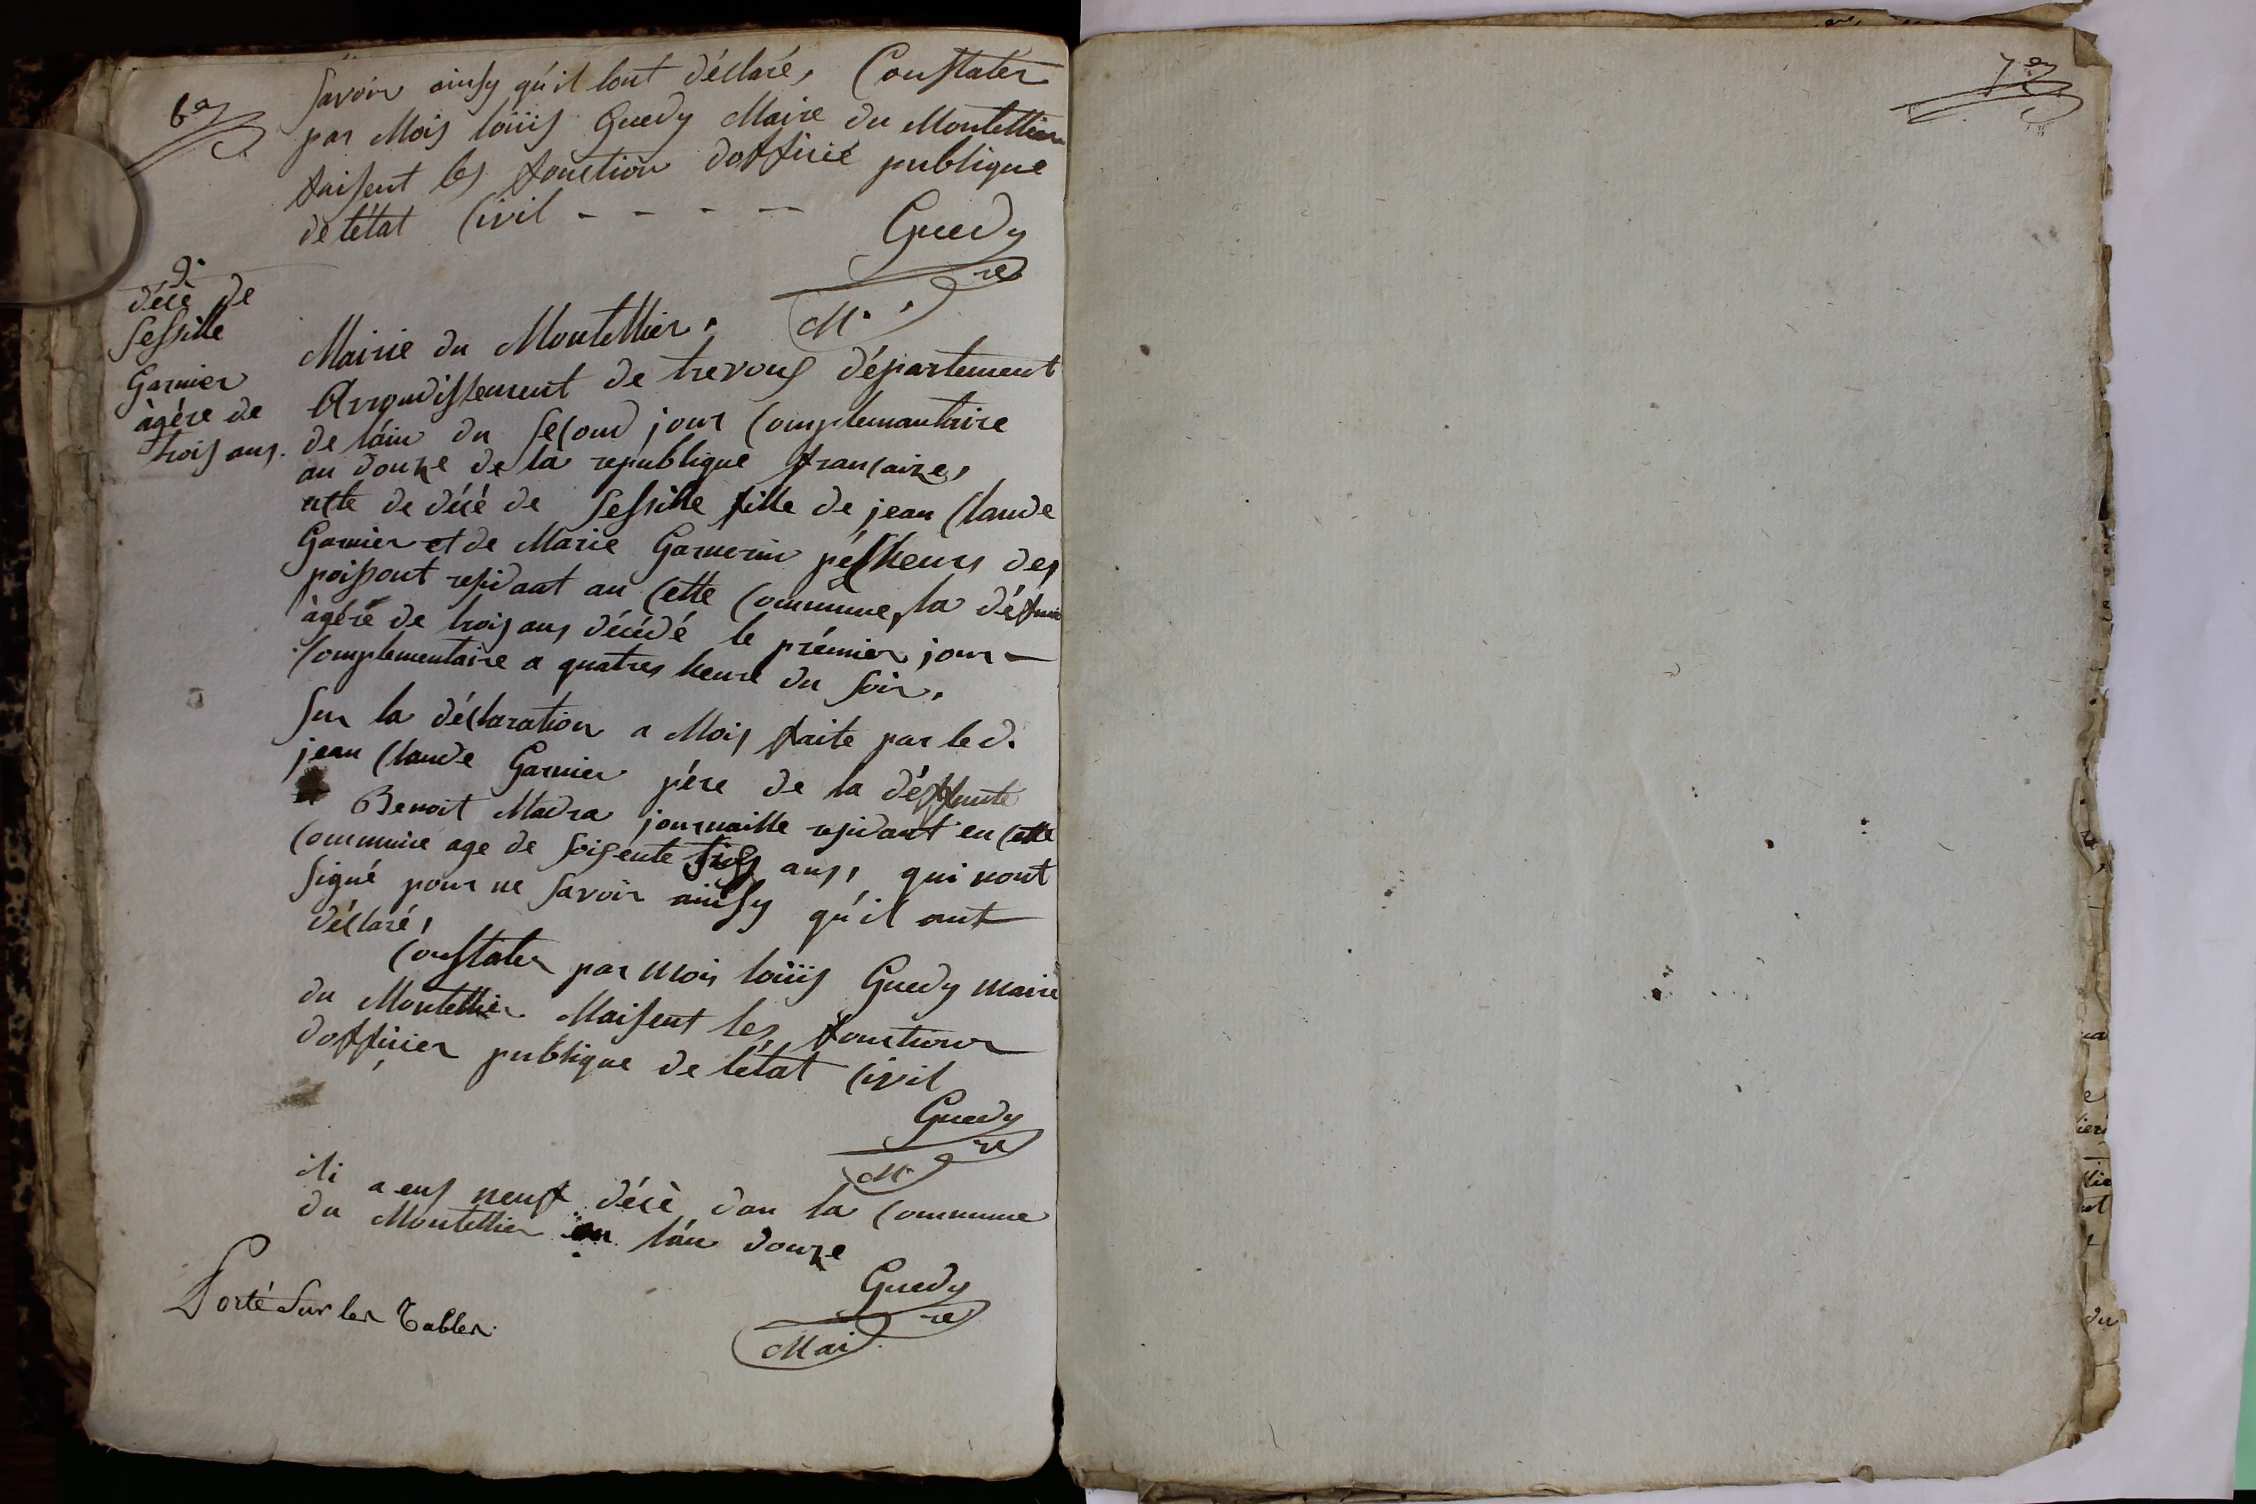 6e
savoir ainsy qu'il lont déclaré, Constater
par Mois loüis Guedy Maire du Montellier
faisent les fonction dofficié publique
de létat Civil - - - -
Guedy
M. re
décè de
Sessille
Garnier
àgére de
trois ans.
Mairie du Montellier.
Arrondissement de trevous département
de láin du second jour Complemantaire
an douze de la republique francaize,
acte de décé de Sessille fille de jean Claude
Garnier et de Marie Garnerin péCheurs des
poissont residant an Cette Commune, la défunte
àgéré de trois ans décédé le prémier jour
Complementaire a quatres heure du soir.
Sur la déclaration a Mois faite par led.
jean Claude Garnier pére de la déffunte
et Benoit Madra journaille residant en Cette
Commune age de soisente ans, qui nont
signé pour ne savoir ainsy qu'il ont
déclaré,
Constater par Mois loüis Guedy Maire
du Montellier Maisent les fonctions
dofficier publique de létat Civil
Guedy
M. re
ili a eus neuf décè dan la Commune
du Montellier en lán douze
Guedy
Mai re
Porté sur les Tables.
7e